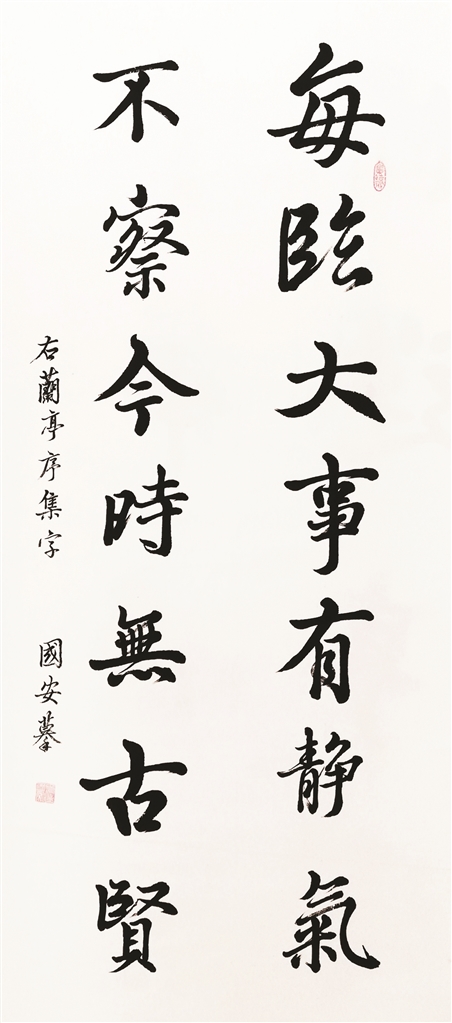 每臨大事有静氣
不察今時無古賢
右蘭亭序集字 國安摹